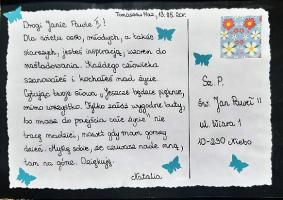 Tomaszów Maz., 13.05.20r.
Drogi Janie Pawle II!
Dla wielu osób, młodych, a także
starszych, jesteś inspiracją, wzorem do
naśladowania. Każdego człowieka
szanowałeś i kochałeś nad życie.
Cytując twoje słowa "Jeszcze będzie pięknie,
mimo wszystko. Tylko załóż wygodne buty,
bo masz do przejścia całe życie" nie
tracę nadziei, nawet gdy mam gorszy
dzień. Myślę sobie, że czuwasz nade mną,
tam na górze. Dziękuję.
Natalia
Sz. P.
Św. Jan Paweł II
ul. Wiara 1
10-230 Niebo